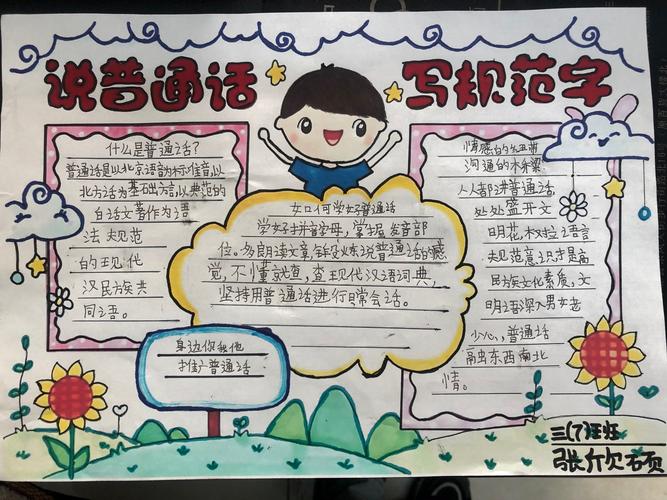 说普通话 写规范字
什么是普通话?
普通话是以北京语音为标准音,以
北方话为基础方言,以典范的
白话文著作为语
法规范
的现代
汉民族共
同语。
如何学好普通话
学好拼音字母,掌握发音部
位。多朗读文章,锻炼说普通话的感
觉,不懂就查,查现代汉语词典,
坚持用普通话进行日常会话。
身边你我他
推广普通话
情感的纽带
沟通的桥梁
人人都讲普通话,
处处盛开文
明花,权拉语言
规范意识才是高
民族文化素质,文
明语深入男女老
少心,普通话
融东西南北
情。
三(7)班
张欣硕